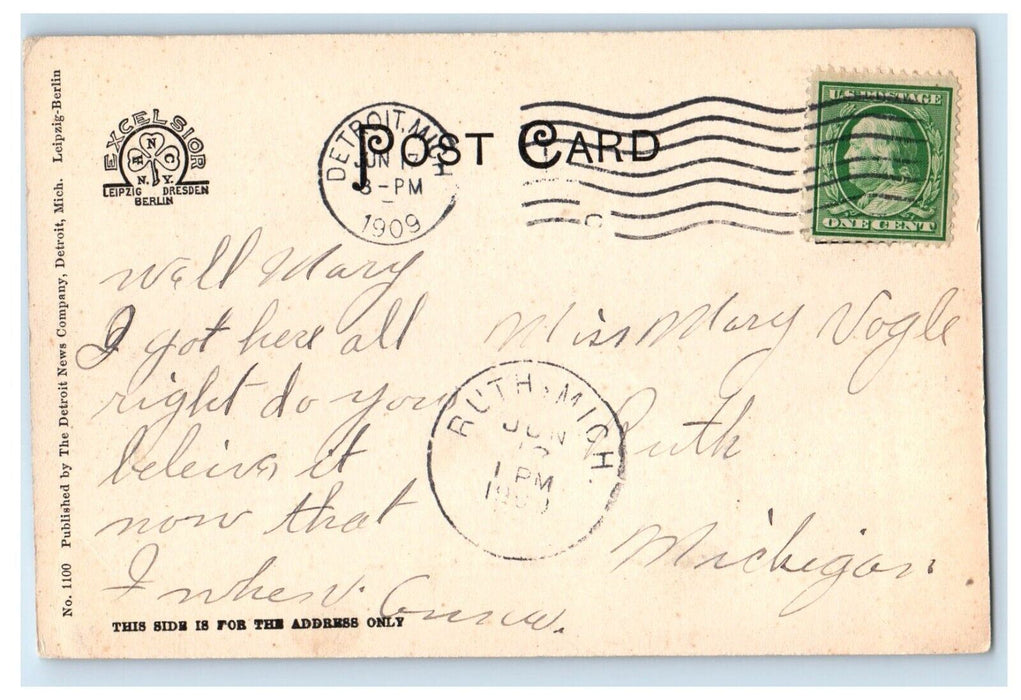 EXCELSIOR
ANC
N.Y.
LEIPZIG DRESDEN
BERLIN
DETROIT, MICH
JUN 17
3-PM
1909
POST CARD
U.S. POSTAGE
ONE CENT
No. 1100 Published by The Detroit News Company, Detroit, Mich. Leipzig-Berlin
Well Mary
I got here all
right do you
beleive it
now that
I
Miss Mary Vogle
Ruth
Michigan
RUTH, MICH.
JUN
1 PM
THIS SIDE IS FOR THE ADDRESS ONLY